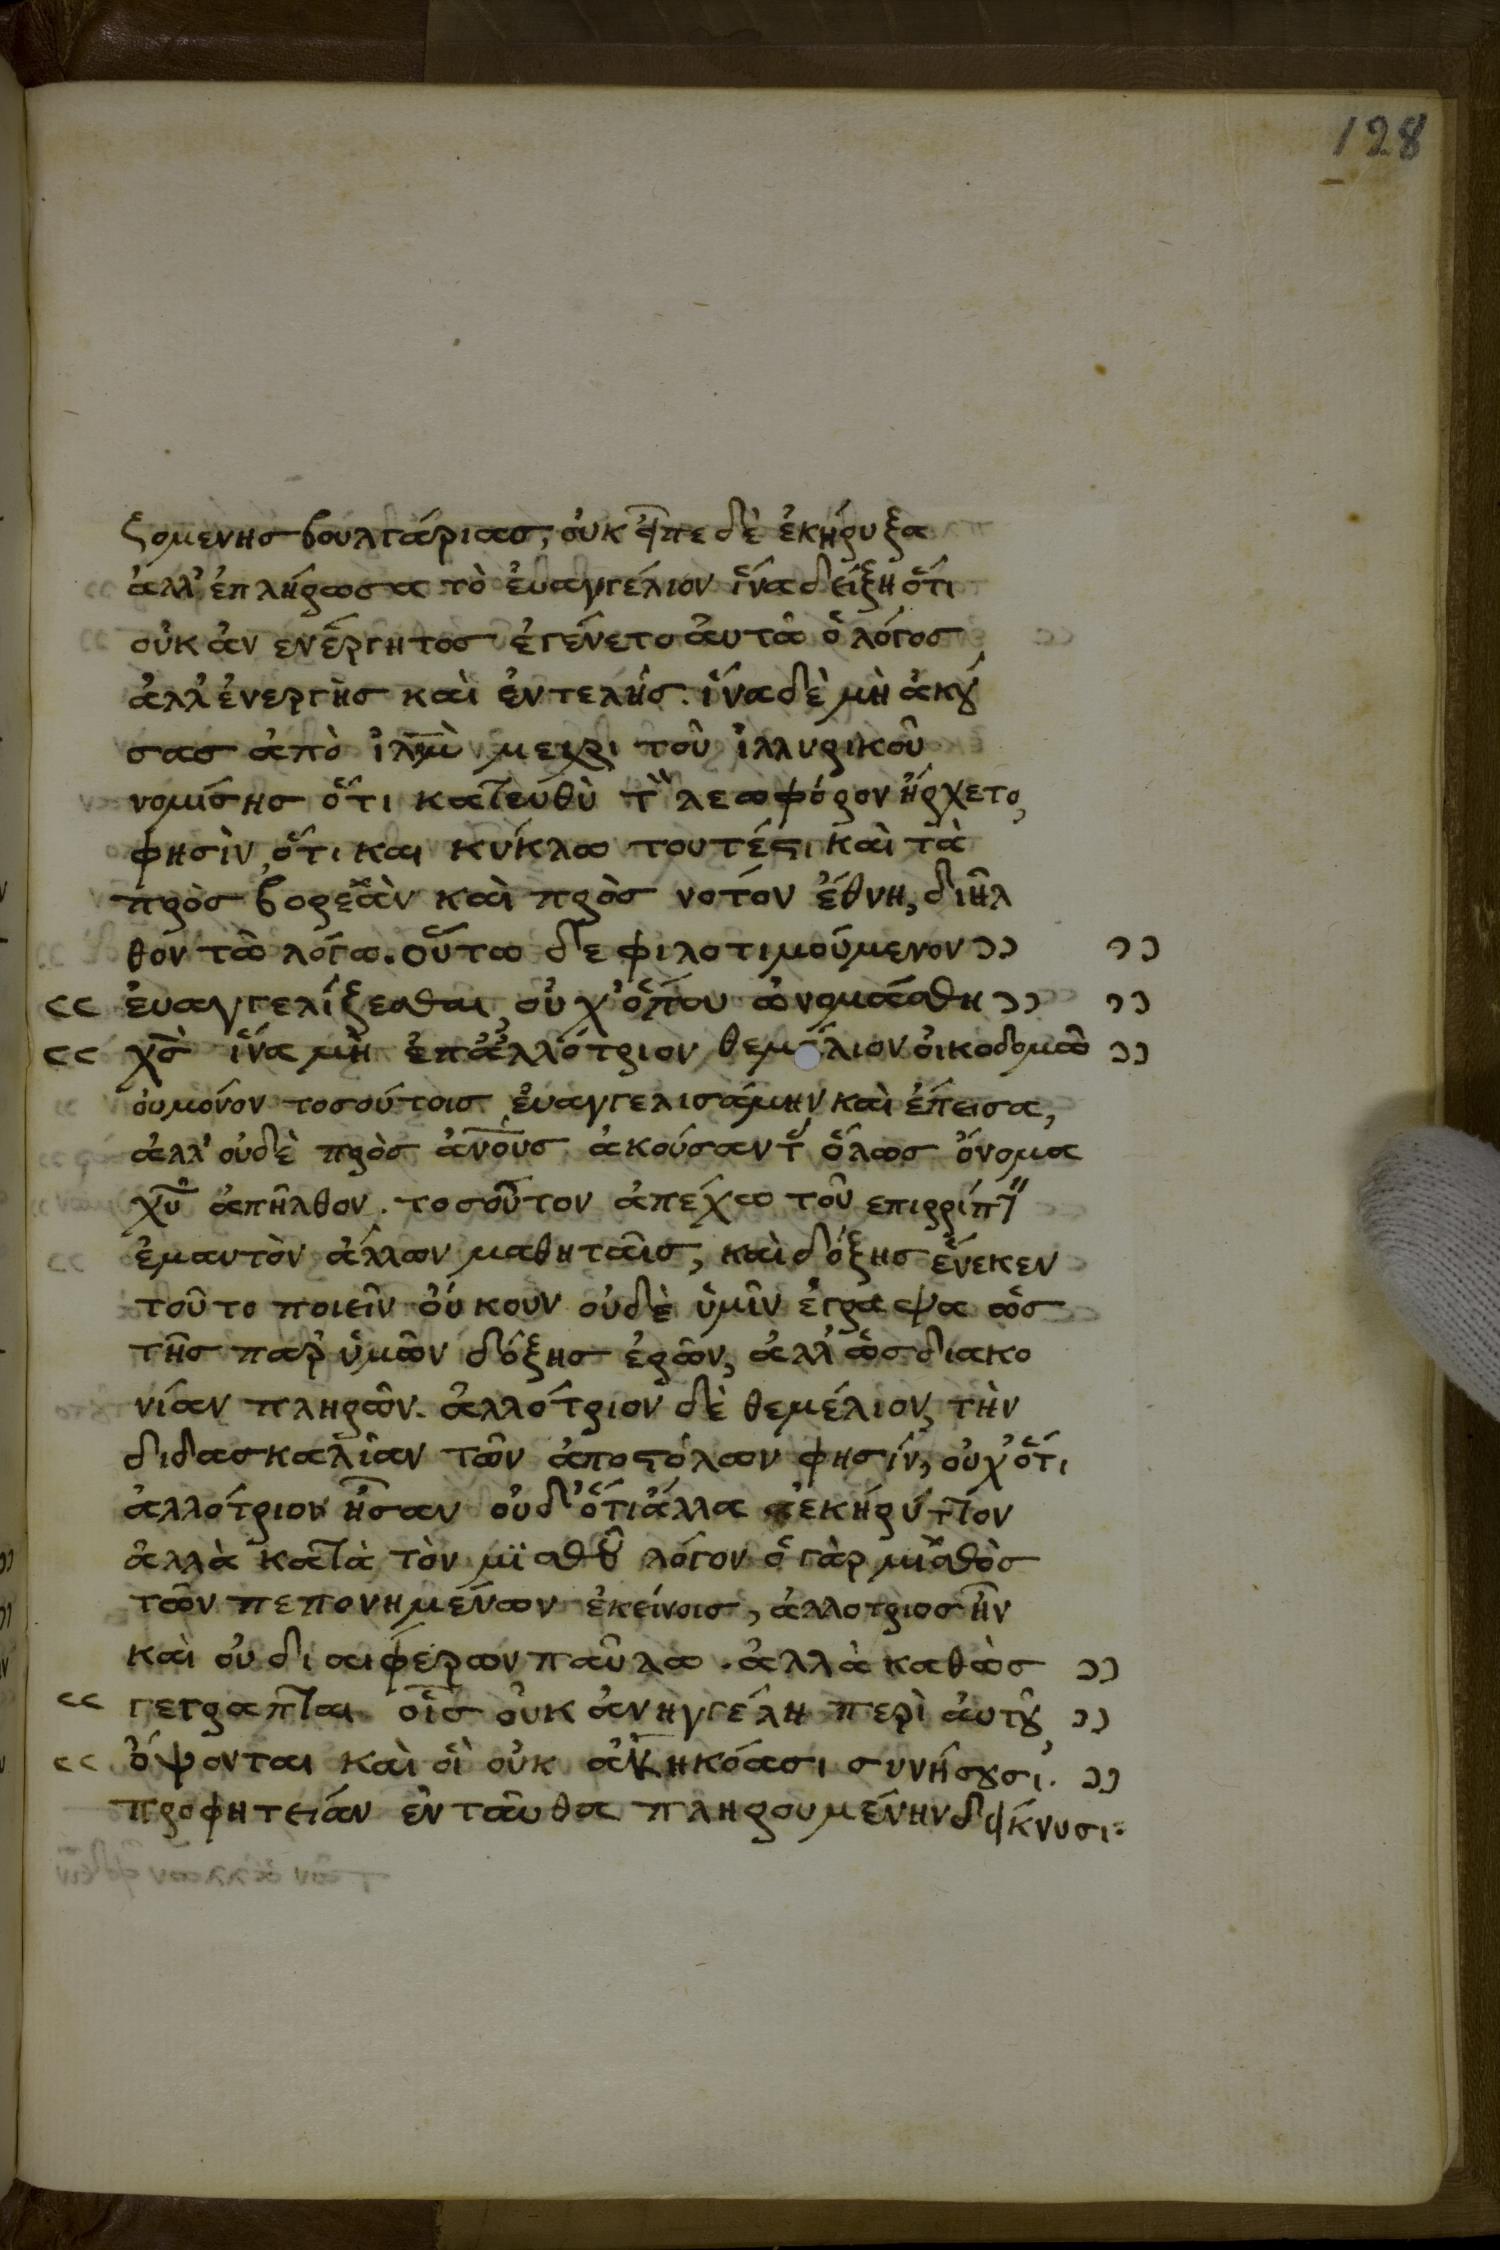 128
ζομενης βουλγάριας, οὐκ εἶπε δὲ ἐκήρυξα
ἀλλ' ἐπλήρωσα τὸ ἐυαγγέλιον ἵνα δείξη ὅτι
οὐκ ἀν ενέργητος ἐγένετο ἀυτῶ ὁ λόγος
ἀλλ' ἐνεργὴς καὶ ἐντελής. ἵνα δὲ μὴ ἀκού
σας ἀπὸ ἰλημ μεχρι τοῦ ἰλλυρικοῦ
νομίσης ὅτι κατευθὺ τὴν λεωφόρον ἤρχετο,
φησὶν ὅτι και κύκλω τουτέστι καὶ τὰ
πρὸς βορεᾶν καὶ πρὸς νοτόν ἔθνη, διῆλ
θον τῶ λόγω. Οὕτω δε φιλοτιμούμενον ››
‹‹ ἐυαγγελίζεσθαι οὐχ' ὅπου ὠνομάσθη ››
‹‹ χς ἵνα μὴ ἐπ' ἀλλότριον θεμέλιον οἰκοδομῶ ››
ου μόνον τοσούτοις ἐυαγγελισάμην καὶ ἔπεισα,
ἀλλ' οὐδὲ πρὸς ἀνους ἀκούσαντας ὅλως ὄνομα
χυ ἀπῆλθον. τοσοῦτον ἀπέχω τοῦ επιρρίπτειν
ἐμαυτὸν ἄλλων μαθηταῖς, καὶ δόξης ἕνεκεν
τοῦτο ποιεῖν οὔκουν οὐδὲ ὑμῖν ἔγραψα ὡς
τῆς παρ' ὑμῶν δόξης ἐρῶν, ἀλλ' ὡς διακο
νίαν πληρῶν. ἀλλότριον δὲ θεμέλιον, τὴν
διδασκαλίαν τῶν ἀποστόλων φησίν, οὐχ' ὅτι
ἀλλότριοι ἦσαν οὐδ' ὅτι ἄλλα ἐκήρυττον
ἀλλὰ κατὰ τὸν μϊσθοῦ λόγον ὁ γὰρ μϊσθὸς
τῶν πεπονημένων ἐκείνοις, ἀλλοτριος ἦν
καὶ οὐ διαφέρων παῦλω. ἀλλὰ καθὼς ››
‹‹ γεγραπται οἷς οὐκ ἀνηγγέλη περὶ ἀυτοῦ ››
‹‹ ὄψονται καὶ οἳ οὐκ ἀκηκόασι συνήσουσι. ››
προφητείαν ἐνταῦθα πληρουμένην δείκνυσι